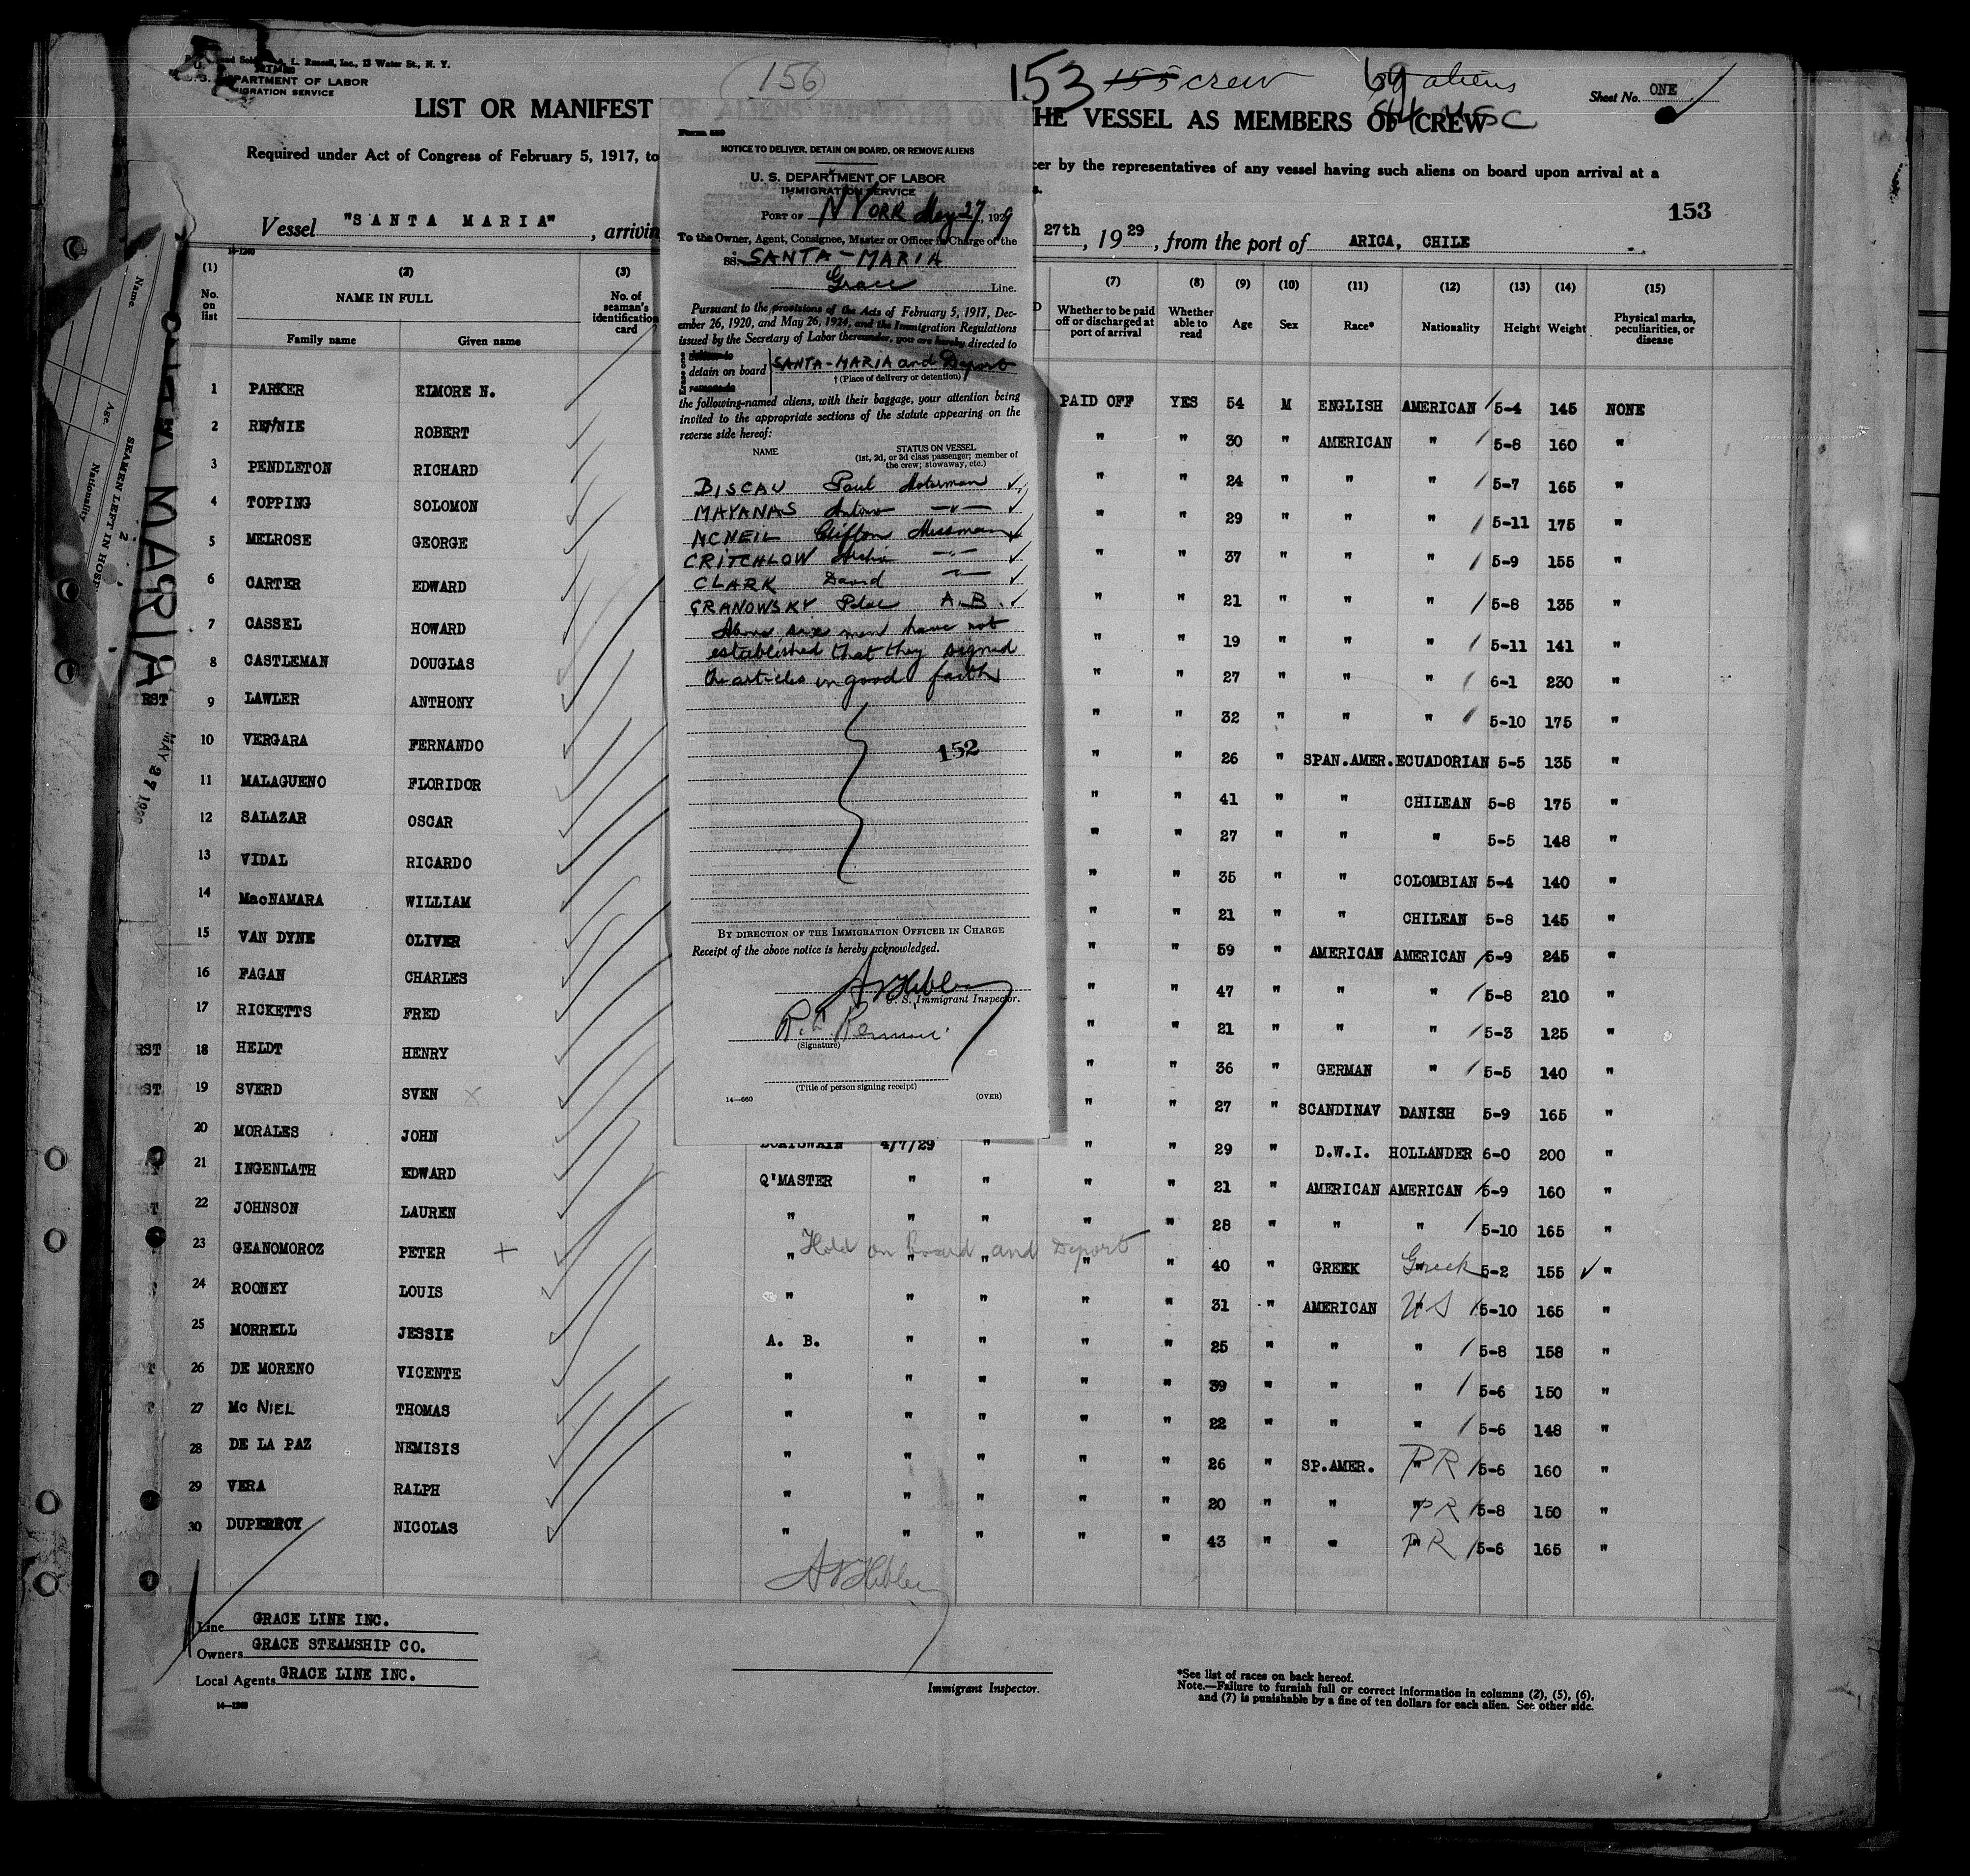 L. Russell, Inc., 13 Water St., N. Y.
DEPARTMENT OF LABOR
IMMIGRATION SERVICE
156
153 155 crew
69 aliens
Sheet No. ONE
LIST OR MANIFEST OF ALIENS EMPLOYED ON THE VESSEL AS MEMBERS OF CREW
Required under Act of Congress of February 5, 1917, to
cer by the representatives of any vessel having such aliens on board upon arrival at a
153
Vessel "SANTA MARIA", arrivin
27th, 1929, from the port of ARICA, CHILE
Form 559
NOTICE TO DELIVER, DETAIN ON BOARD, OR REMOVE ALIENS
U. S. DEPARTMENT OF LABOR
IMMIGRATION SERVICE
PORT OF N YORK May 27, 1929
To the Owner, Agent, Consignee, Master or Officer in Charge of the
SS. SANTA-MARIA
Grace Line.
Pursuant to the provisions of the Acts of February 5, 1917, Dec-
ember 26, 1920, and May 26, 1924, and the Immigration Regulations
issued by the Secretary of Labor thereunder, you are hereby directed to
Erase one
deliver to
detain on board SANTA-MARIA and Deport
remove to
† (Place of delivery or detention)
the following-named aliens, with their baggage, your attention being
invited to the appropriate sections of the statute appearing on the
reverse side hereof:
NAME STATUS ON VESSEL
(1st, 2d, or 3d class passenger; member of
the crew; stowaway, etc.)
BISCAU Paul Motorman ✓
MAYANAS Antono -"- ✓
MCNEIL Clifton Messman ✓
CRITCHLOW Archie -"- ✓
CLARK David -"- ✓
GRANOWSKY Peter A.B. ✓
Above six men have not
established that they signed
the articles in good faith
152
BY DIRECTION OF THE IMMIGRATION OFFICER IN CHARGE
Receipt of the above notice is hereby acknowledged.
U. S. Immigrant Inspector.
(Signature)
(Title of person signing receipt)
14—660 (OVER)
14-1240
(1) (2) (3) (7) (8) (9) (10) (11) (12) (13) (14) (15)
No. on list NAME IN FULL No. of seaman's identification card Whether to be paid off or discharged at port of arrival Whether able to read Age Sex Race* Nationality Height Weight Physical marks, peculiarities, or disease
Family name Given name
1 PARKER ELMORE N. PAID OFF YES 54 M ENGLISH AMERICAN 5-4 145 NONE
2 RENNIE ROBERT " " 30 " AMERICAN " 5-8 160 "
3 PENDLETON RICHARD " " 24 " " " 5-7 165 "
4 TOPPING SOLOMON " " 29 " " " 5-11 175 "
5 MELROSE GEORGE " " 37 " " " 5-9 155 "
6 CARTER EDWARD " " 21 " " " 5-8 135 "
7 CASSEL HOWARD " " 19 " " " 5-11 141 "
8 CASTLEMAN DOUGLAS " " 27 " " " 6-1 230 "
9 LAWLER ANTHONY " " 32 " " " 5-10 175 "
10 VERGARA FERNANDO " " 26 " SPAN.AMER. ECUADORIAN 5-5 135 "
11 MALAGUENO FLORIDOR " " 41 " " CHILEAN 5-8 175 "
12 SALAZAR OSCAR " " 27 " " " 5-5 148 "
13 VIDAL RICARDO " " 35 " " COLOMBIAN 5-4 140 "
14 MacNAMARA WILLIAM " " 21 " " CHILEAN 5-8 145 "
15 VAN DYNE OLIVER " " 59 " AMERICAN AMERICAN 5-9 245 "
16 FAGAN CHARLES " " 47 " " " 5-8 210 "
17 RICKETTS FRED " " 21 " " " 5-3 125 "
18 HELDT HENRY " " 36 " GERMAN " 5-5 140 "
19 SVERD SVEN " " 27 " SCANDINAV DANISH 5-9 165 "
20 MORALES JOHN BOATSWAIN 4/7/29 " " " 29 " D.W.I. HOLLANDER 6-0 200 "
21 INGENLATH EDWARD Q'MASTER " " " " 21 " AMERICAN AMERICAN 5-9 160 "
22 JOHNSON LAUREN " " " " " 28 " " " 5-10 165 "
23 GEANOMOROZ PETER + " " " " Hold on board and Deport 40 " GREEK Greek 5-2 155 ✓ "
24 ROONEY LOUIS " " " " " 31 " AMERICAN US 5-10 165 "
25 MORRELL JESSIE A. B. " " " " 25 " " " 5-8 158 "
26 DE MORENO VICENTE " " " " " 39 " " " 5-6 150 "
27 Mc NIEL THOMAS " " " " " 22 " " " 5-6 148 "
28 DE LA PAZ NEMISIS " " " " " 26 " SP.AMER. PR 5-6 160 "
29 VERA RALPH " " " " " 20 " " PR 5-8 150 "
30 DUPERROY NICOLAS " " " " " 43 " " PR 5-6 165 "
Line GRACE LINE INC.
Owners GRACE STEAMSHIP CO.
Local Agents GRACE LINE INC.
14—1240
Immigrant Inspector.
*See list of races on back hereof.
Note.—Failure to furnish full or correct information in columns (2), (5), (6),
and (7) is punishable by a fine of ten dollars for each alien. See other side.
MARIA
MAY 27 1929
SEAMEN LEFT IN HOSP
Name Age Nationality